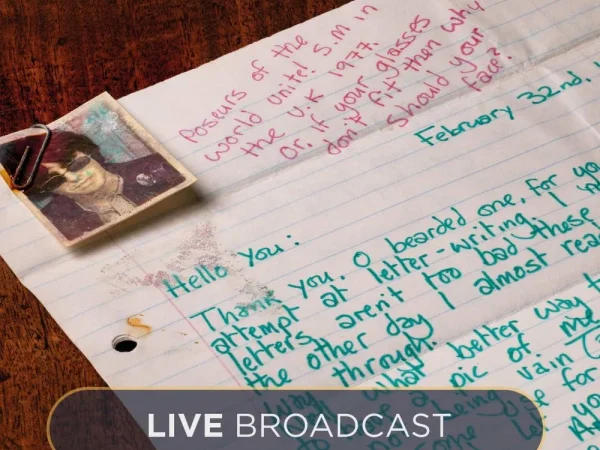 Poseurs of the
world unite! S.M in
the U.K 1977.
or, If your glasses
don't fit then why
should your
face?
February 32nd,
Hello You:
Thank you, O bearded one, for
attempt at letter-writing. I
letters aren't too bad these
the other day I almost
through.
what better way
pic of
not being vain
for
LIVE BROADCAST